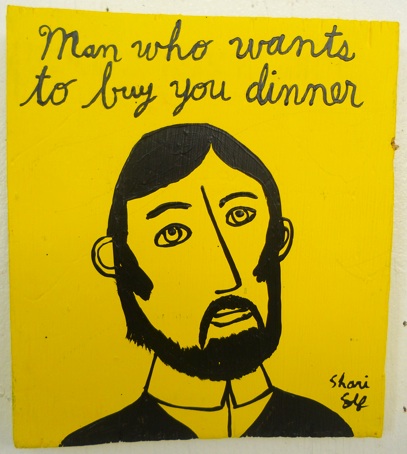 Man who wants
to buy you dinner
Shari
Elf